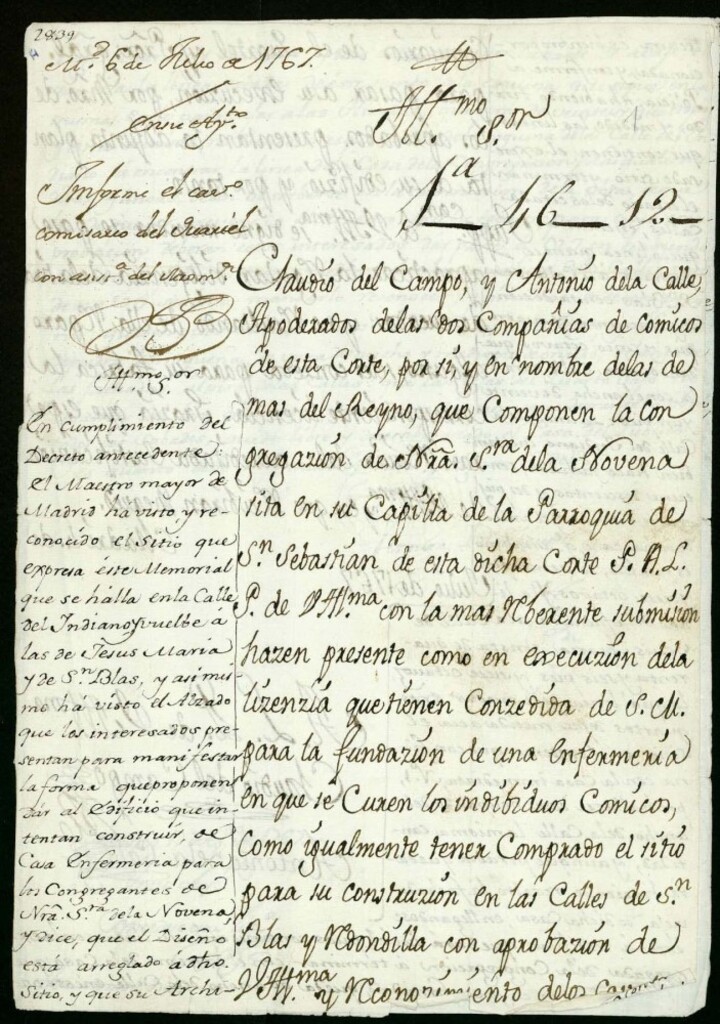 2839
M.d 6 de Julio de 1767.
En su Ay.to
Informe el cav.o
comisario del Quartel
con asis.a del Mro m.r
Ill.mo S.or
En cumplimiento del
Decreto antecedente:
el Maestro mayor de
Madrid há visto, y re-
conocido el Sitio que
expresa éste Memorial
que se hálla en la Calle
del Indiano y vuelbe á
las de Jesus Maria
y de S.n Blas, y asimis
mo há visto el Alzado
que los interesados pre-
sentan para manifestar
la forma que proponen
dár al Edificio que in-
tentan construir, de
Casa Enfermeria para
los Congregantes de
Nrã. S.ra de la Novena,
y dice, que el Diseño
está arreglado á dho.
Sitio, y que su Archi-
Ill.mo S.or
1a 46 12
Claudio del Campo, y Antonio dela Calle,
Apoderados delas dos Compañias de comicos
de esta Corte, por si, y en nombre delas de
mas del Reyno, que Componen la con
gregazion de Nrã. S.ra dela Novena
sita en su Capilla de la Parroquia de
S.n Sebastian de esta dicha Corte P. A. L.
P. de V Ill.ma con la mas Rberente submision
hazen presente como en execuzion dela
lizenzia que tienen Conzedida de S. M.
para la fundazion de una Enfermeria
en que se Curen los indibiduos Comicos,
Como igualmente tener Comprado el sitio
para su construzion en las Calles de S.n
Blas y Rdondilla con aprobazion de
V Ill.ma y Rconozimiento delos